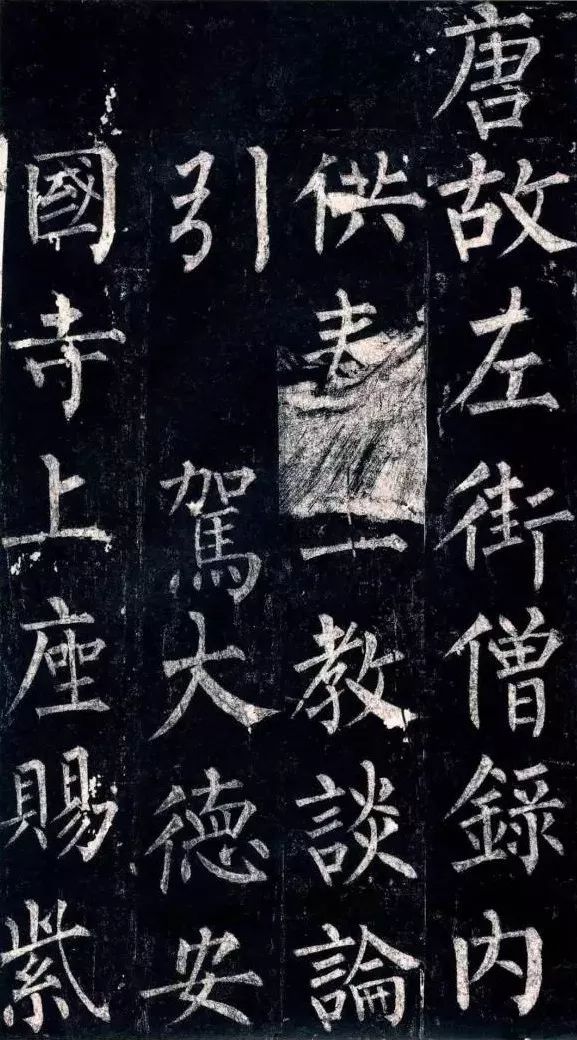 唐故左街僧錄内
供教談論
引駕大德安
國寺上座賜紫